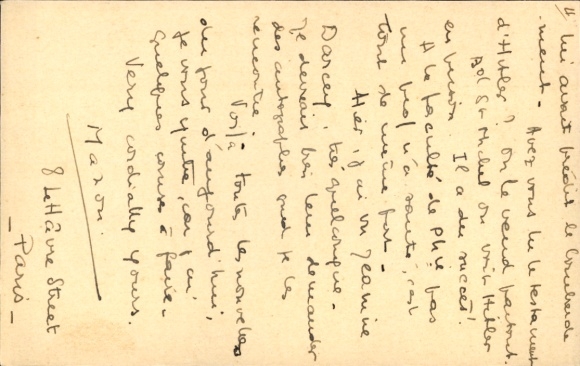 4/ lui avait prédit le
ment. Avez vous lu le testament
d'Hitler ? On le vend partout.
Bd St Michel on voit Hitler
en buison. Il a du succès !
A la faculté de Phie pas
un bec n'a sauté, c'est
tout de même fort.
Hier, j'ai vu Jeanine
Darcey, très quelconque.
Je devrais bien leur demander
des autographes quand je les
rencontre.
Voilà toutes les nouvelles
du jour d'aujourd'hui,
je vous quitte, car j'ai
quelques courses à faire.
Very cordially yours.
Manon.
8 Le Hâvre Street
_ Paris _